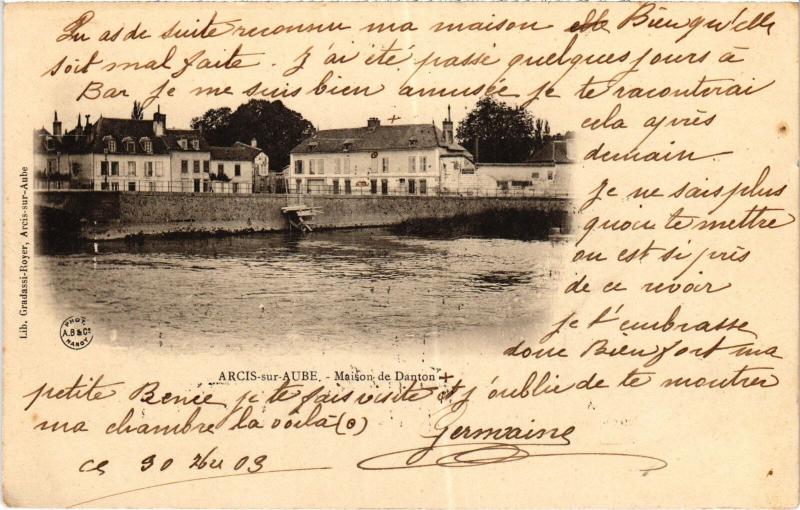 Tu as de suite reconnu ma maison elle Bien qu'elle
soit mal faite. J'ai été passé quelques jours à
Bar je me suis bien amusée je te raconterai
+
cela après
demain.
Je ne sais plus
quoi te mettre
on est si près
de ce revoir
je t'embrasse
donc Bien fort ma
Lib. Gradassi-Royer, Arcis-sur-Aube
PHOT.
A.B & Cie
NANCY
ARCIS-sur-AUBE. - Maison de Danton +
petite Benée je te fais visite et j'oublie de te montrer
ma chambre la voilà (o)
Germaine
ce 30 03